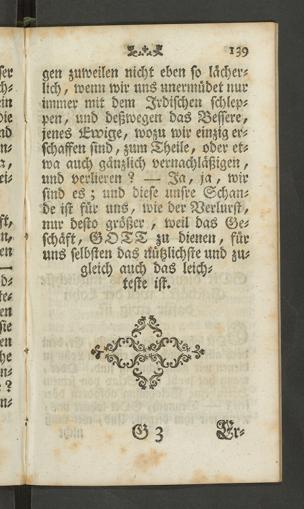 139
gen zuweilen nicht eben so lächer-
lich, wenn wir uns unermüdet nur
immer mit dem Irdischen schlep-
pen, und deßwegen das Bessere,
jenes Ewige, wozu wir einzig er-
schaffen sind, zum Theile, oder et-
wa auch gänzlich vernachläßigen,
und verlieren? — Ja, ja, wir
sind es; und diese unsre Schan-
de ist für uns, wie der Verlurst,
nur desto größer, weil das Ge-
schäft, GOTT zu dienen, für
uns selbsten das nützlichste und zu-
gleich auch das leich-
teste ist.
G 3 Er-